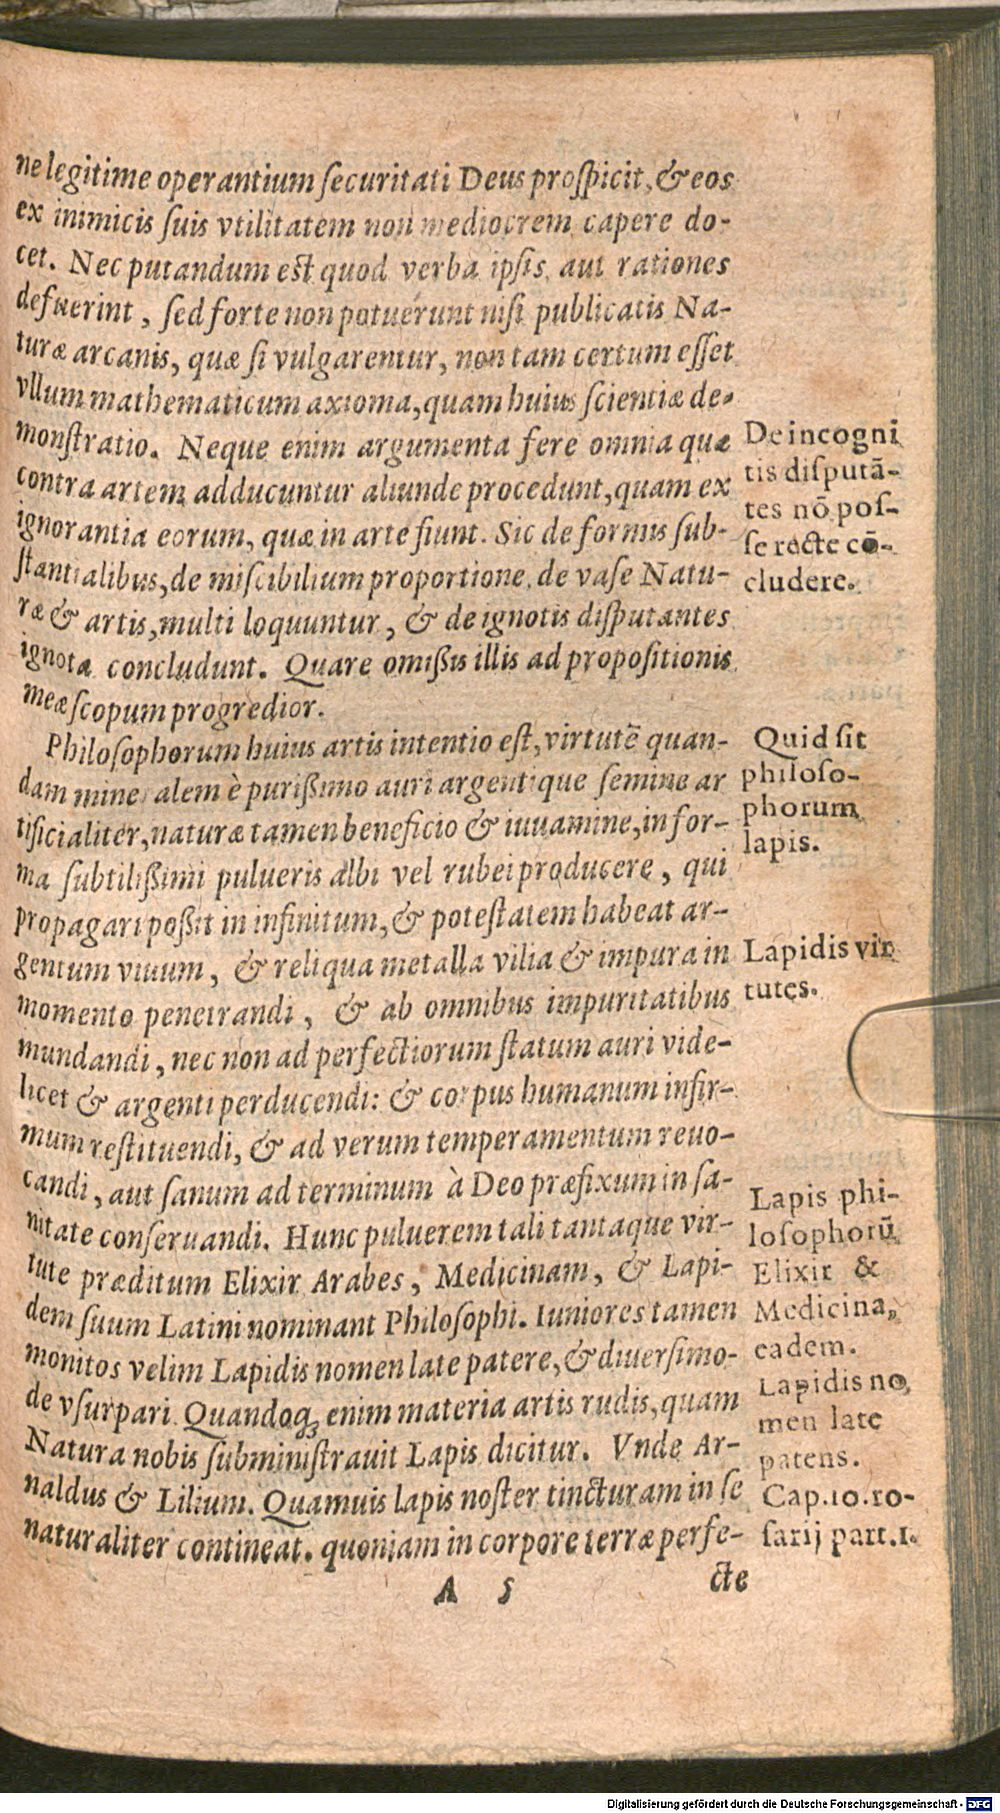 ne legitime operantium ſecuritati Deus proſpicit, & eos
ex inimicis ſuis vtilitatem non mediocrem capere do-
cet. Nec putandum eſt quod verba ipſis aut rationes
defuerint, ſed forte non potuerunt niſi publicatis Na-
turæ arcanis, quæ ſi vulgarentur, non tam certum eſſet
vllum mathematicum axioma, quam huius ſcientiæ de-
monſtratio. Neque enim argumenta fere omnia quæ
contra artem adducuntur aliunde procedunt, quam ex
ignorantia eorum, quæ in arte fiunt. Sic de formis ſub-
ſtantialibus, de miſcibilium proportione, de vaſe Natu-
ræ & artis, multi loquuntur, & de ignotis diſputantes
ignota concludunt. Quare omiſſis illis ad propoſitionis
meæ ſcopum progredior.
De incogni
tis diſputā-
tes nō poſ-
ſe recte cō-
cludere.
Philoſophorum huius artis intentio eſt, virtutē quan-
dam mineralem è puriſſimo auri argentique ſemine ar
tificialiter, naturæ tamen beneficio & iuuamine, in for-
ma ſubtiliſſimi pulueris albi vel rubei producere, qui
propagari poſſit in infinitum, & poteſtatem habeat ar-
gentum viuum, & reliqua metalla vilia & impura in
momento penetrandi, & ab omnibus impuritatibus
mundandi, nec non ad perfectiorum ſtatum auri vide-
licet & argenti perducendi: & corpus humanum infir-
mum reſtituendi, & ad verum temperamentum reuo-
candi, aut ſanum ad terminum à Deo præfixum in ſa-
nitate conſeruandi. Hunc puluerem tali tantaque vir-
tute præditum Elixir Arabes, Medicinam, & Lapi-
dem ſuum Latini nominant Philoſophi. Iuniores tamen
monitos velim Lapidis nomen late patere, & diuerſimo-
de vſurpari. Quandoq; enim materia artis rudis, quam
Natura nobis ſubminiſtrauit Lapis dicitur. Vnde Ar-
naldus & Lilium. Quamuis lapis noſter tincturam in ſe
naturaliter contineat. quoniam in corpore terræ perfe-
Quid ſit
philoſo-
phorum
lapis.
Lapidis vir
tutes.
Lapis phi-
loſophorū
Elixir &
Medicina,
eadem.
Lapidis no
men late
patens.
Cap. 10. ro-
ſarij part. 1.
A 5
cte
Digitalisierung gefördert durch die Deutsche Forschungsgemeinschaft - DFG